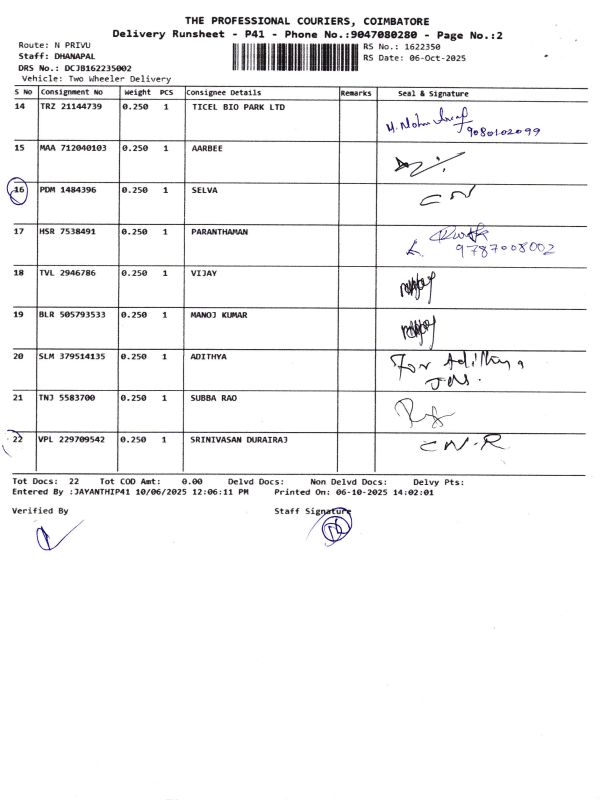 THE PROFESSIONAL COURIERS, COIMBATORE
Delivery Runsheet - P41 - Phone No.:9047080280 - Page No.:2
Route: N PRIVU
RS No.: 1622350
Staff: DHANAPAL
RS Date: 06-Oct-2025
DRS No.: DCJB162235002
Vehicle: Two Wheeler Delivery
S No Consignment No Weight PCS Consignee Details Remarks Seal & Signature
14 TRZ 21144739 0.250 1 TICEL BIO PARK LTD
9080102099
15 MAA 712040103 0.250 1 AARBEE
16 PDM 1484396 0.250 1 SELVA CN
17 HSR 7538491 0.250 1 PARANTHAMAN
9787008002
18 TVL 2946786 0.250 1 VIJAY
19 BLR 505793533 0.250 1 MANOJ KUMAR
20 SLM 379514135 0.250 1 ADITHYA For Adithya
21 TNJ 5583700 0.250 1 SUBBA RAO
22 VPL 229709542 0.250 1 SRINIVASAN DURAIRAJ CN-R
Tot Docs: 22 Tot COD Amt: 0.00 Delvd Docs: Non Delvd Docs: Delvy Pts:
Entered By :JAYANTHIP41 10/06/2025 12:06:11 PM Printed On: 06-10-2025 14:02:01
Verified By Staff Signature